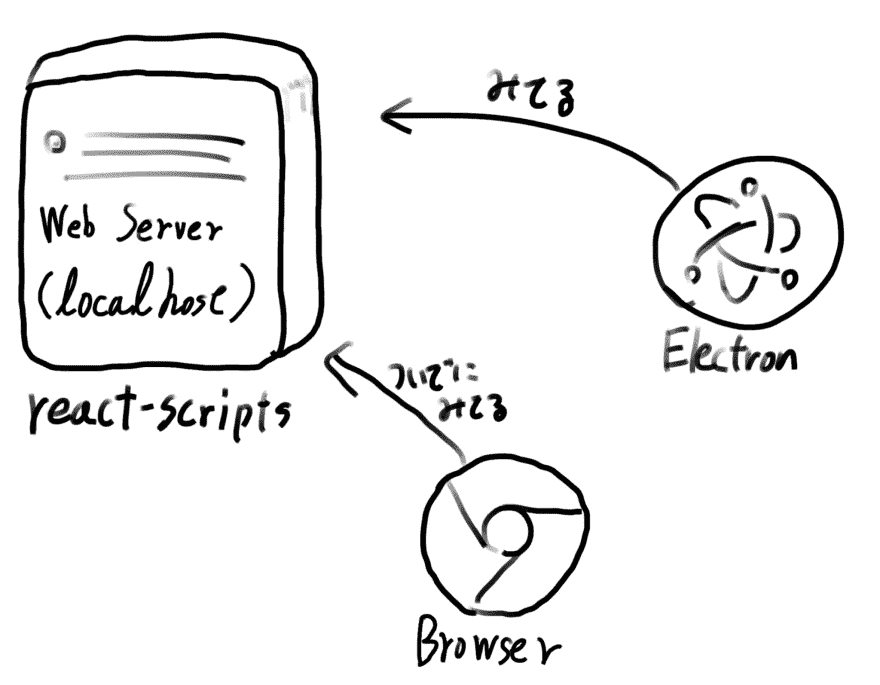 みてる
Web Server
(localhost)
react-scripts
Electron
ついでに
みてる
Browser